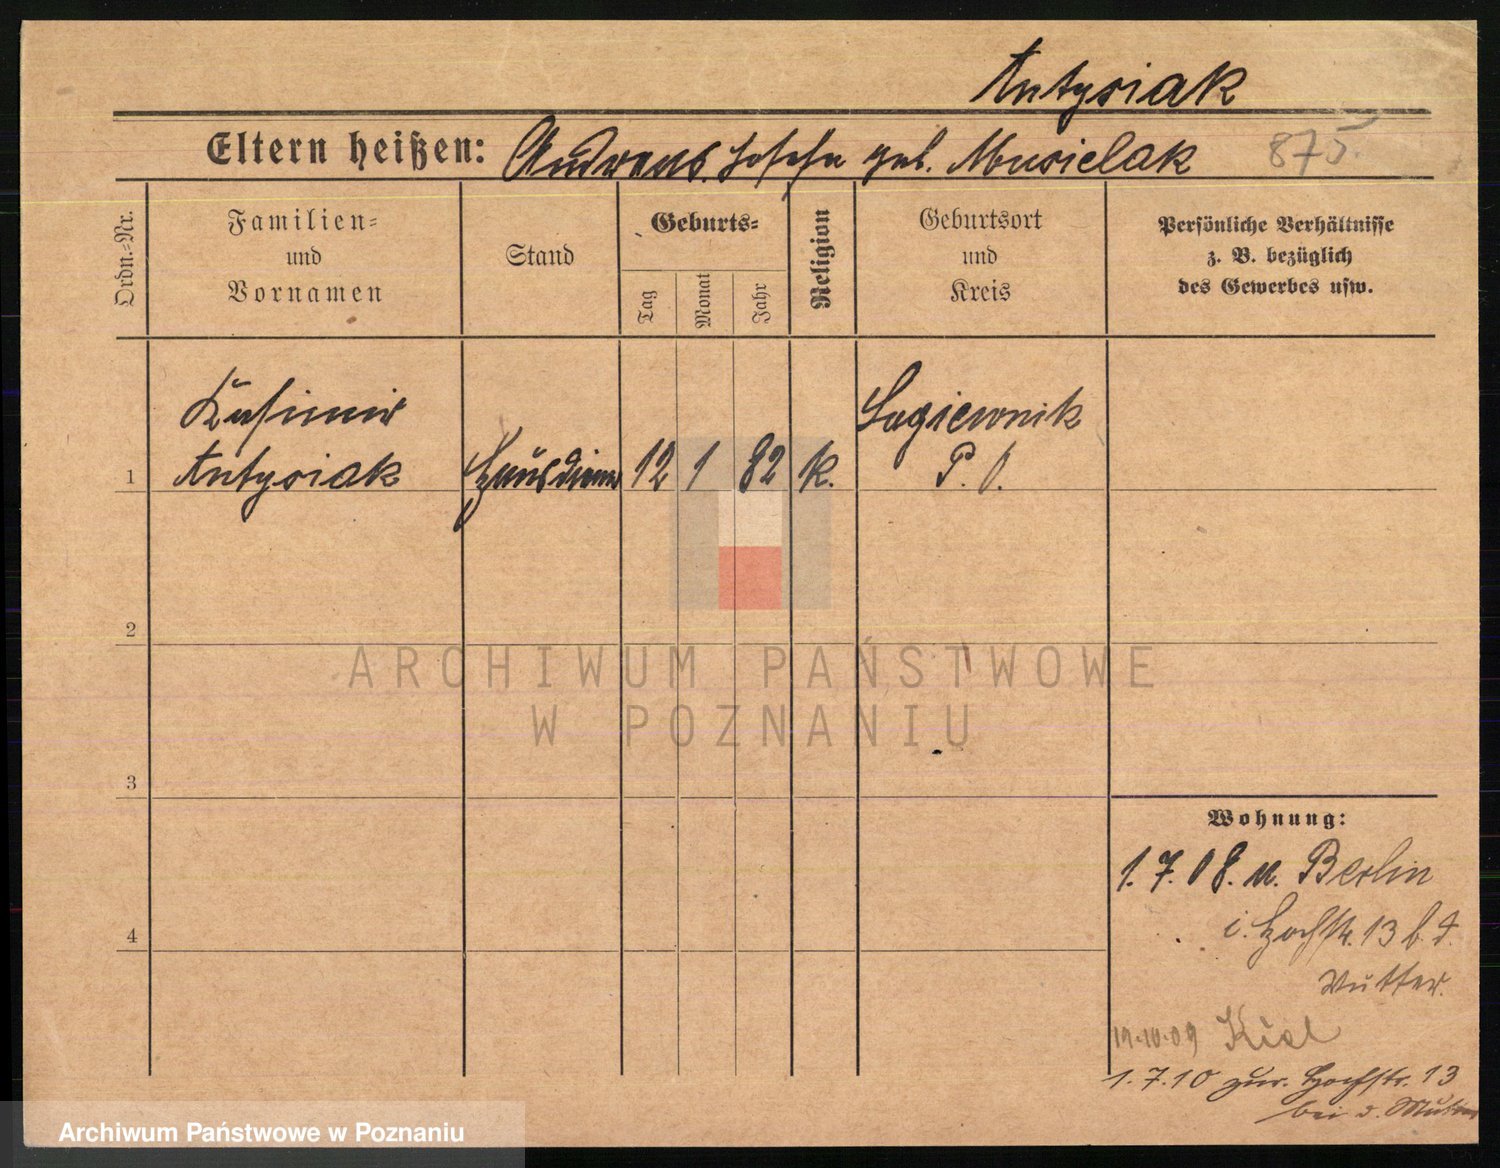 Antysiak
Eltern heißen: Andreas. Josefa geb. Musielak 875.
Ordn.-Nr.
Familien-
und
Vornamen
Stand
Geburts-
Tag
Monat
Jahr
Religion
Geburtsort
und
Kreis
Persönliche Verhältnisse
z. B. bezüglich
des Gewerbes usw.
Kasimir
1 Antysiak Hausdiener 12 1 82 k.
Lagiewnik
P. O.
2
3
4
ARCHIWUM PAŃSTWOWE
W POZNANIU
Wohnung:
1.7.08. u. Berlin
i. Hochstr. 13 b. d.
Mutter.
19.10.09 Kiel
1.7.10 zur. Hochstr. 13
bei d. Mutter
Archiwum Państwowe w Poznaniu